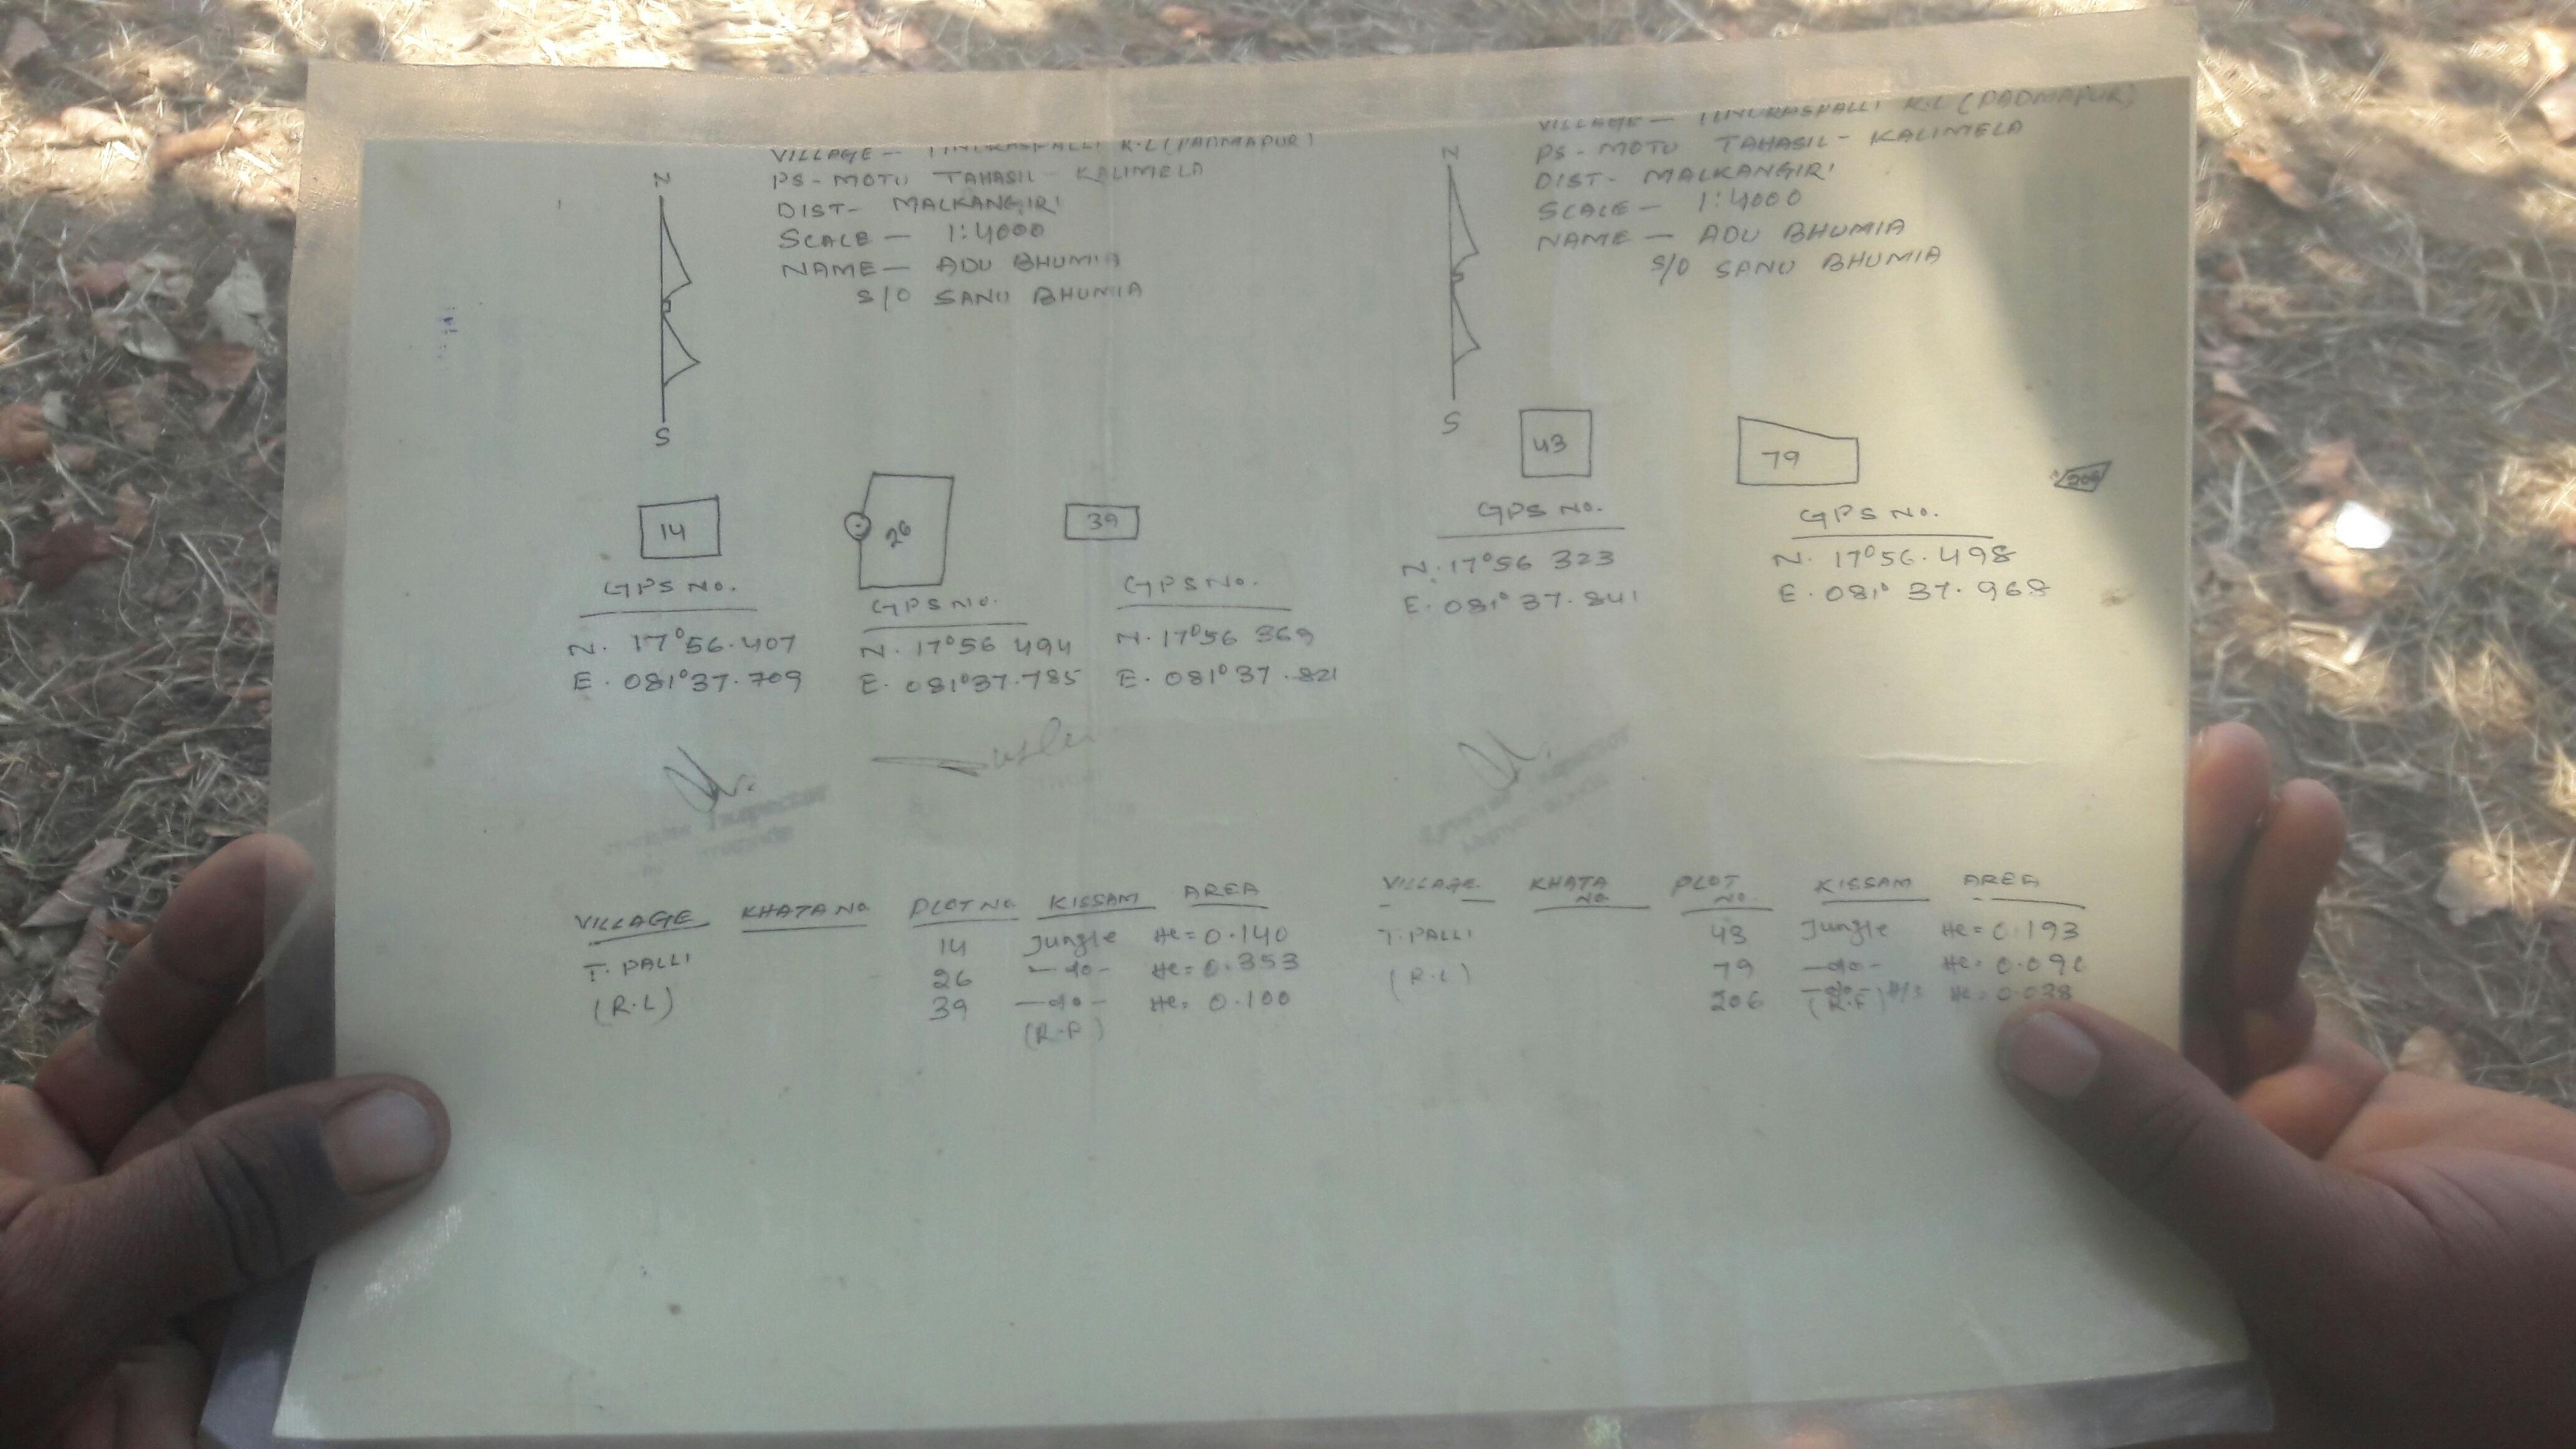 VILLAGE - R.L (PADMAPUR)
PS - MOTU TAHASIL - KALIMELA
DIST- MALKANGIRI
SCALE - 1:4000
NAME - ADU BHUMIA
S/O SANU BHUMIA
N
S
14
26
39
GPS NO.
N. 17°56.407
E. 081°37.709
GPS NO.
N. 17°56 494
E. 081°37.785
GPS NO.
N. 17°56 369
E. 081°37.821
VILLAGE KHATA NO PLOT NO KISSAM AREA
T. PALLI 14 Jungle He = 0.140
(R.L) 26 -do- He = 0.353
39 -do- He = 0.100
(R.F)
VILLAGE - R.L (PADMAPUR)
PS - MOTU TAHASIL - KALIMELA
DIST- MALKANGIRI
SCALE - 1:4000
NAME - ADU BHUMIA
S/O SANU BHUMIA
N
S
43
79
206
GPS NO.
N. 17°56 323
E. 081°37.841
GPS NO.
N. 17°56.498
E. 081°37.968
Inspector
VILLAGE KHATA NO. PLOT NO. KISSAM AREA
T. PALLI 43 Jungle He = 0.193
(R.L) 79 -do- He =
206 -do- (R.F) He = 0.038